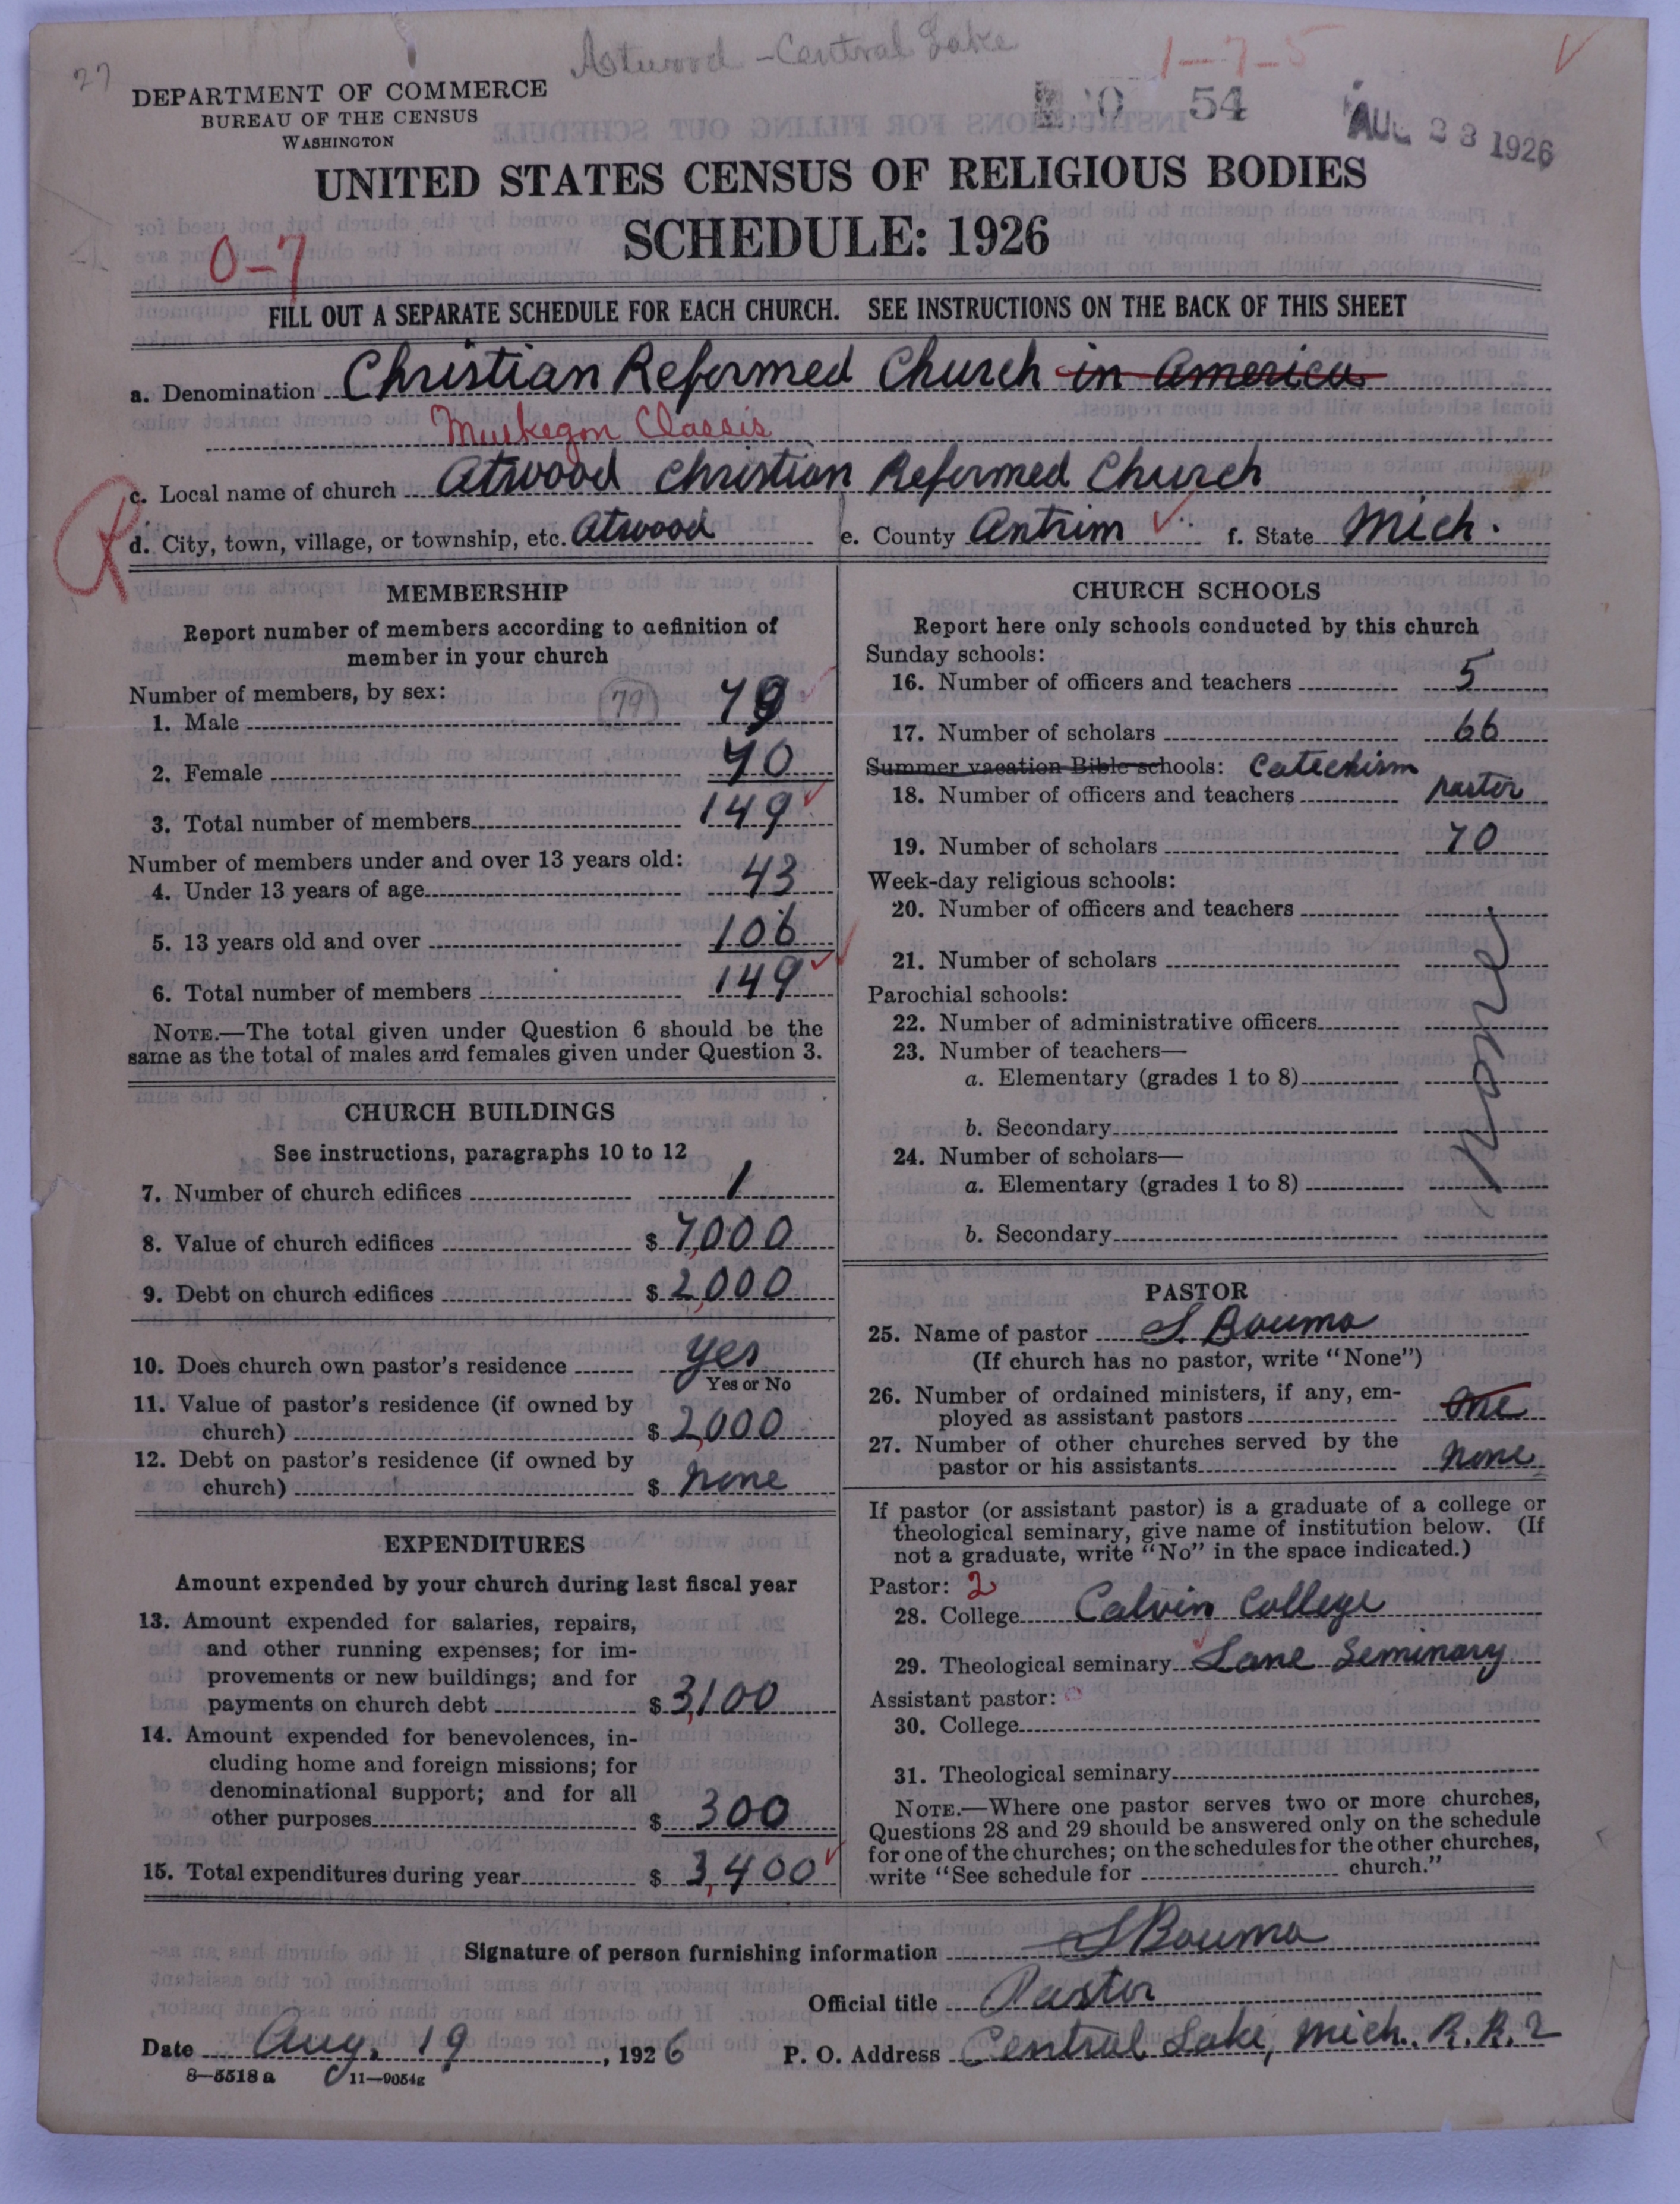 27
Atwood - Central Lake
1-7-5
DEPARTMENT OF COMMERCE
BUREAU OF THE CENSUS
WASHINGTON
54
AUG 23 1926
UNITED STATES CENSUS OF RELIGIOUS BODIES
SCHEDULE: 1926
0-7
FILL OUT A SEPARATE SCHEDULE FOR EACH CHURCH. SEE INSTRUCTIONS ON THE BACK OF THIS SHEET
a. Denomination Christian Reformed Church in America
Muskegon Classis
R
c. Local name of church Atwood Christian Reformed Church
d. City, town, village, or township, etc. Atwood e. County Antrim f. State Mich.
MEMBERSHIP
Report number of members according to definition of
member in your church
Number of members, by sex:
1. Male (79) 79
2. Female 70
3. Total number of members 149
Number of members under and over 13 years old:
4. Under 13 years of age 43
5. 13 years old and over 106
6. Total number of members 149
NOTE.—The total given under Question 6 should be the
same as the total of males and females given under Question 3.
CHURCH BUILDINGS
See instructions, paragraphs 10 to 12
7. Number of church edifices 1
8. Value of church edifices $ 7,000
9. Debt on church edifices $ 2,000
10. Does church own pastor's residence yes
Yes or No
11. Value of pastor's residence (if owned by
church) $ 2,000
12. Debt on pastor's residence (if owned by
church) $ none
EXPENDITURES
Amount expended by your church during last fiscal year
13. Amount expended for salaries, repairs,
and other running expenses; for im-
provements or new buildings; and for
payments on church debt $ 3,100
14. Amount expended for benevolences, in-
cluding home and foreign missions; for
denominational support; and for all
other purposes $ 300
15. Total expenditures during year $ 3,400
CHURCH SCHOOLS
Report here only schools conducted by this church
Sunday schools:
16. Number of officers and teachers 5
17. Number of scholars 66
Summer vacation Bible schools: Catechism
18. Number of officers and teachers pastor
19. Number of scholars 70
Week-day religious schools:
20. Number of officers and teachers
21. Number of scholars
Parochial schools:
22. Number of administrative officers
23. Number of teachers—
a. Elementary (grades 1 to 8)
b. Secondary
24. Number of scholars—
a. Elementary (grades 1 to 8)
b. Secondary
none
PASTOR
25. Name of pastor S Bouma
(If church has no pastor, write "None")
26. Number of ordained ministers, if any, em-
ployed as assistant pastors one
27. Number of other churches served by the
pastor or his assistants none
If pastor (or assistant pastor) is a graduate of a college or
theological seminary, give name of institution below. (If
not a graduate, write "No" in the space indicated.)
Pastor: 2
28. College Calvin College
29. Theological seminary Lane Seminary
Assistant pastor: 0
30. College
31. Theological seminary
NOTE.—Where one pastor serves two or more churches,
Questions 28 and 29 should be answered only on the schedule
for one of the churches; on the schedules for the other churches,
write "See schedule for church."
Signature of person furnishing information S Bouma
Official title Pastor
Date Aug. 19, 1926 P. O. Address Central Lake, Mich. R.R. 2
8—5518 a 11—9054g